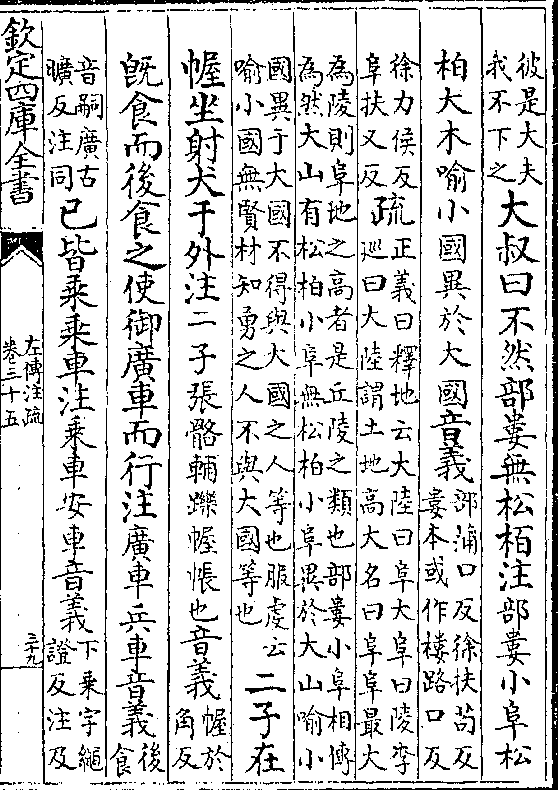 彼是大夫
我不下之
大叔曰不然部婁無松栢注部婁小阜松
柏大木喻小國異於大國音義
部蒲口反徐扶苟反
婁本或作樓路口反
徐力侯反
阜扶又反
疏
正義曰釋地云大陸曰阜大阜曰陵李
廵曰大陸謂土地高大名曰阜阜最大
為陵則阜地之高者是丘陵之類也部婁小阜相傳
為然大山有松柏小阜無松柏小阜異於大山喻小
國異于大國不得與大國之人等也服虔云
喻小國無賢材知勇之人不與大國等也
二子在
幄坐射犬于外注二子張骼輔躒幄帳也音義
幄於
角反
既食而後食之使御廣車而行注廣車兵車音義
後
食
音嗣廣古
曠反注同
已皆乘乘車注乘車安車音義
下乗字繩
證反注及
欽定四庫全書
左傳注疏
卷三十五
三十九